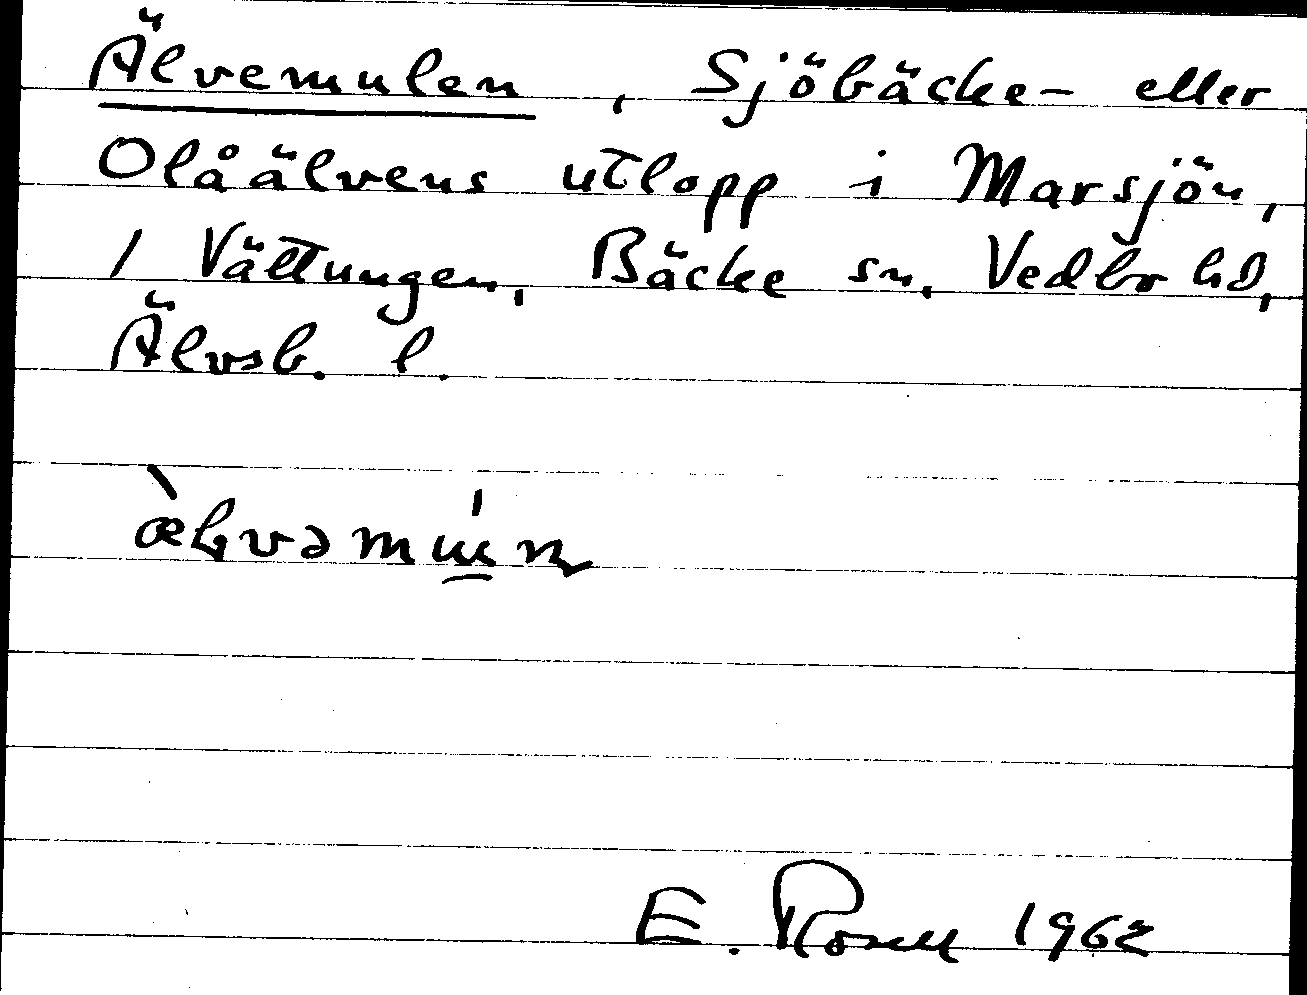 Älvemulen, Sjöbäcke- eller
Olåälvens utlopp i Marsjön,
/ Vättungen, Bäcke sn, Vedbo hd,
Älvsb. l.
E. Rosell 1962